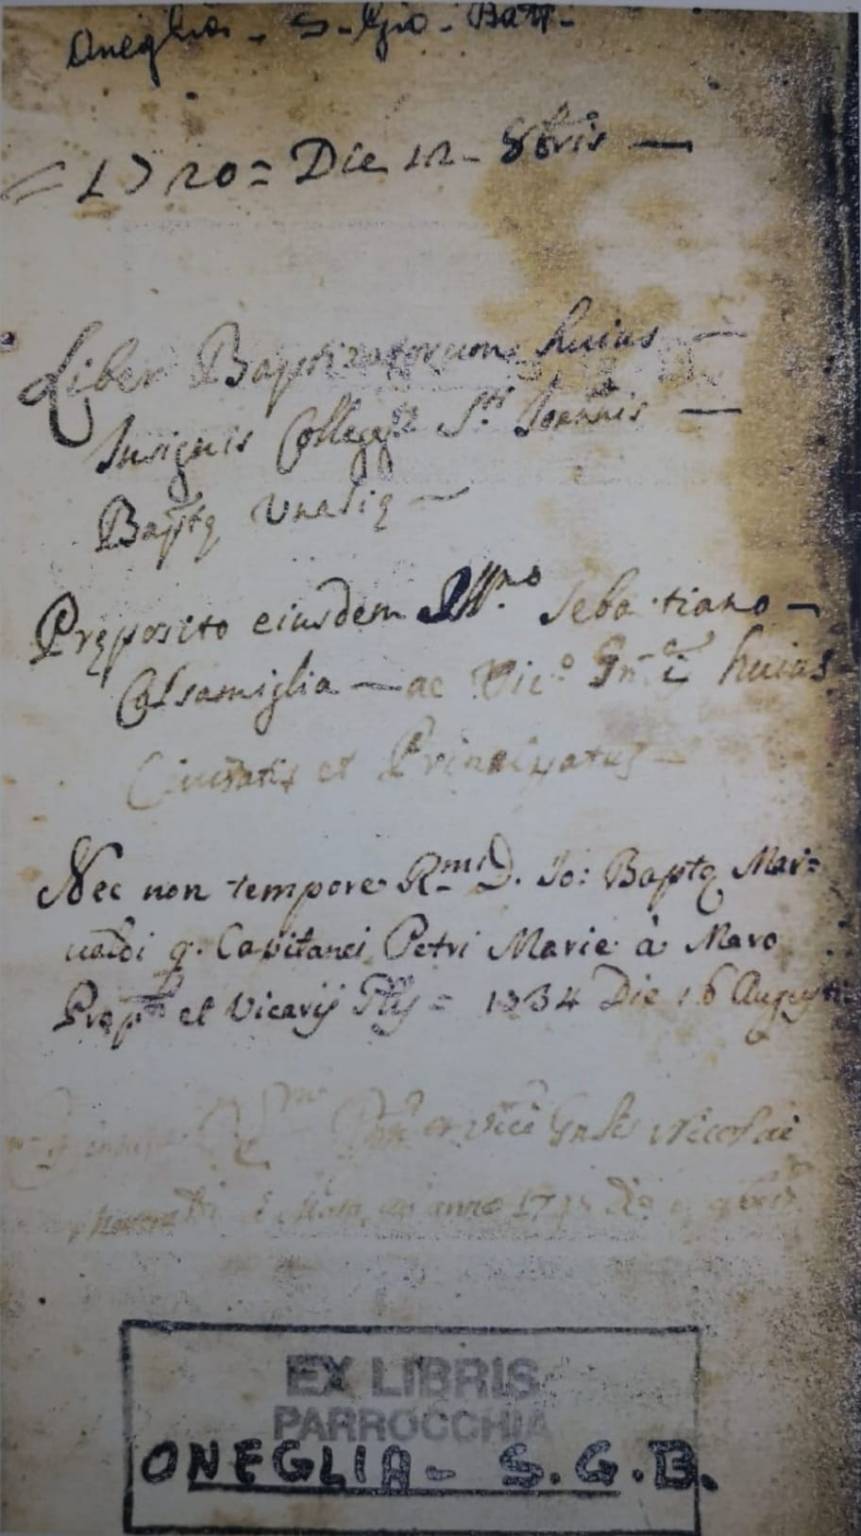 Oneglia - S. Gio. Batt.
= 1720 = Die 12 - 8bris —
Liber Baptizatorum huius —
Insignis Collegtę Sti Joannis —
Baptę Unelię —
Pręposito eiusdem Illmo Sebastiano —
Calsamiglia — ac Vico Gnli huius
Ciuitatis et Principatus —
Nec non tempore Rmi D. Jo: Baptę Mar=
ualdi q. Capitanei Petri Marie à Maro
Prępti et Vicarij Glis = 1734 Die 16 Augusti
Nicolai
anno
EX LIBRIS
PARROCCHIA
ONEGLIA - S.G.B.